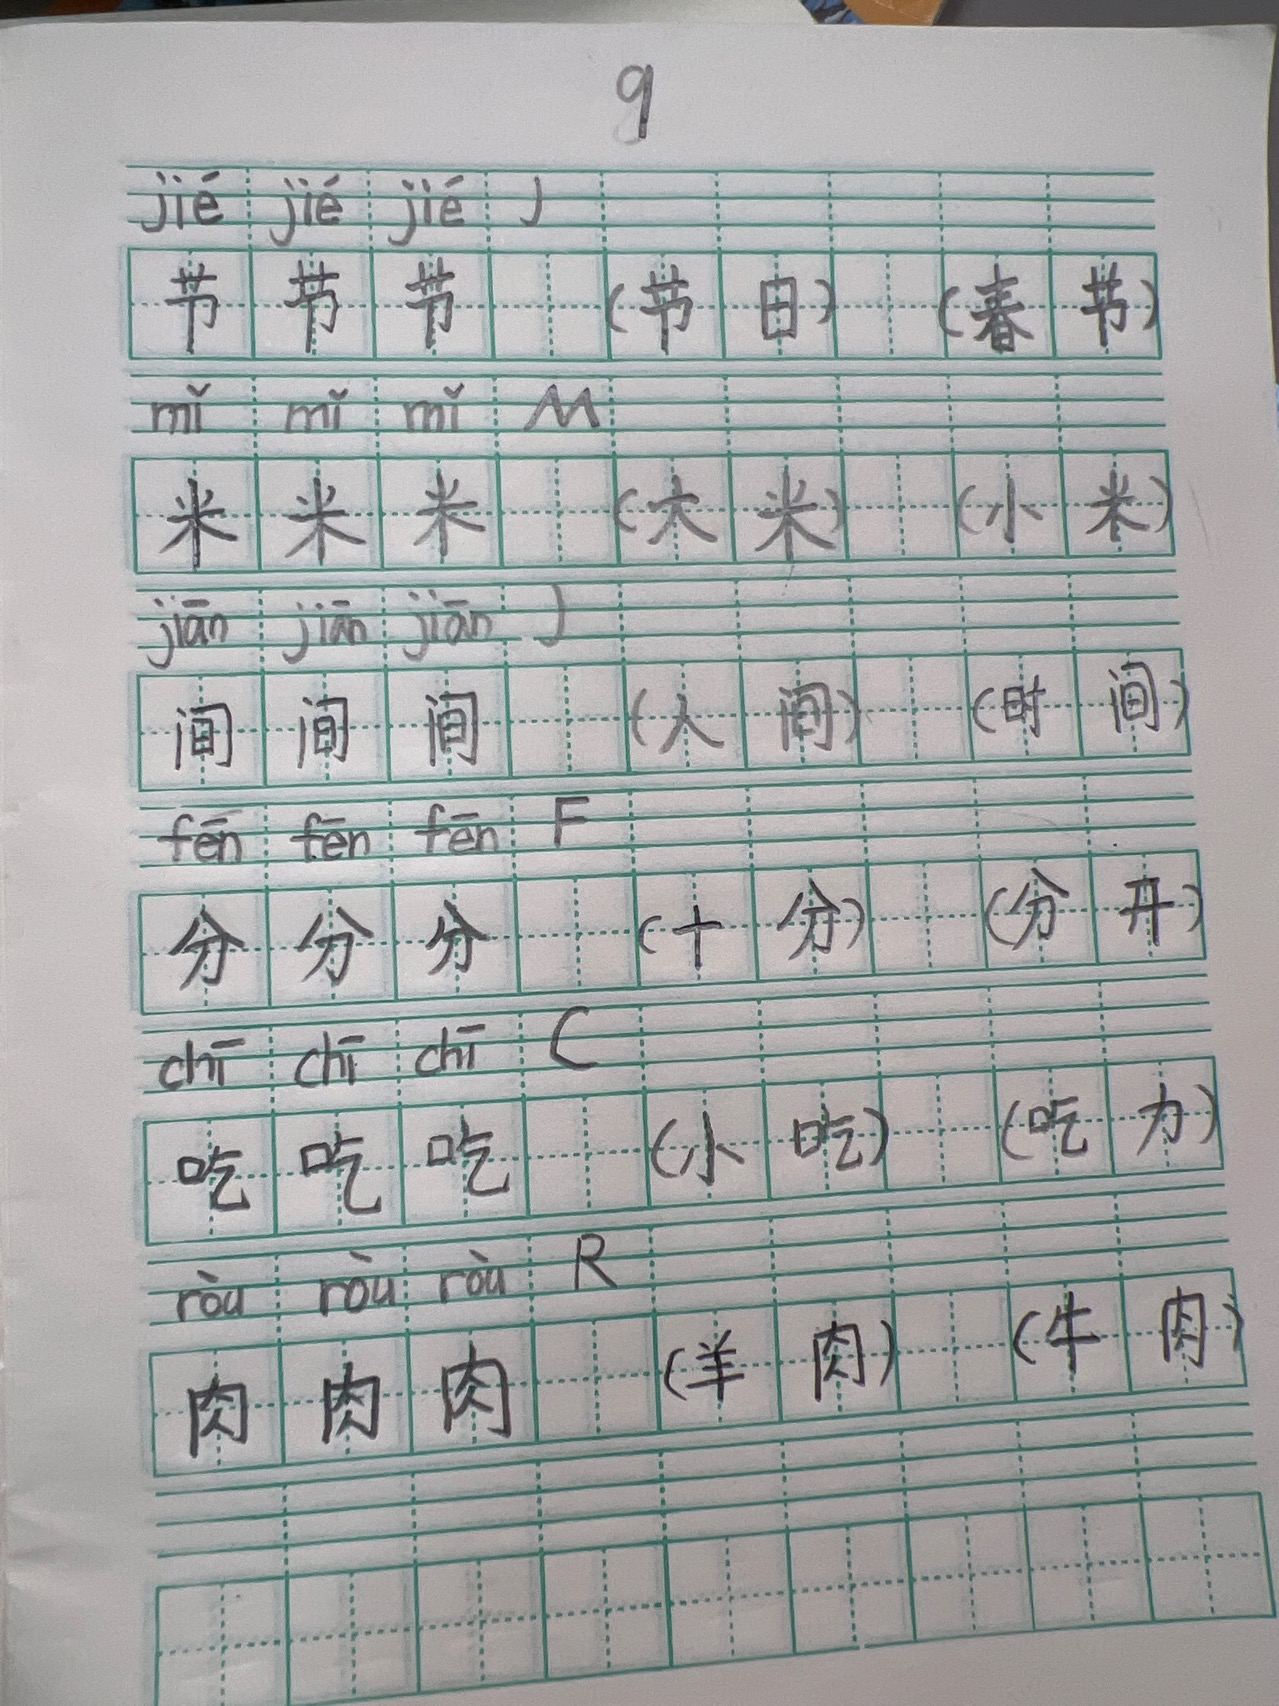 9
jié jié jié J
节 节 节 (节 日) (春 节)
mǐ mǐ mǐ M
米 米 米 (大 米) (小 米)
jiān jiān jiān J
间 间 间 (人 间) (时 间)
fēn fēn fēn F
分 分 分 (十 分) (分 开)
chī chī chī C
吃 吃 吃 (小 吃) (吃 力)
ròu ròu ròu R
肉 肉 肉 (羊 肉) (牛 肉)